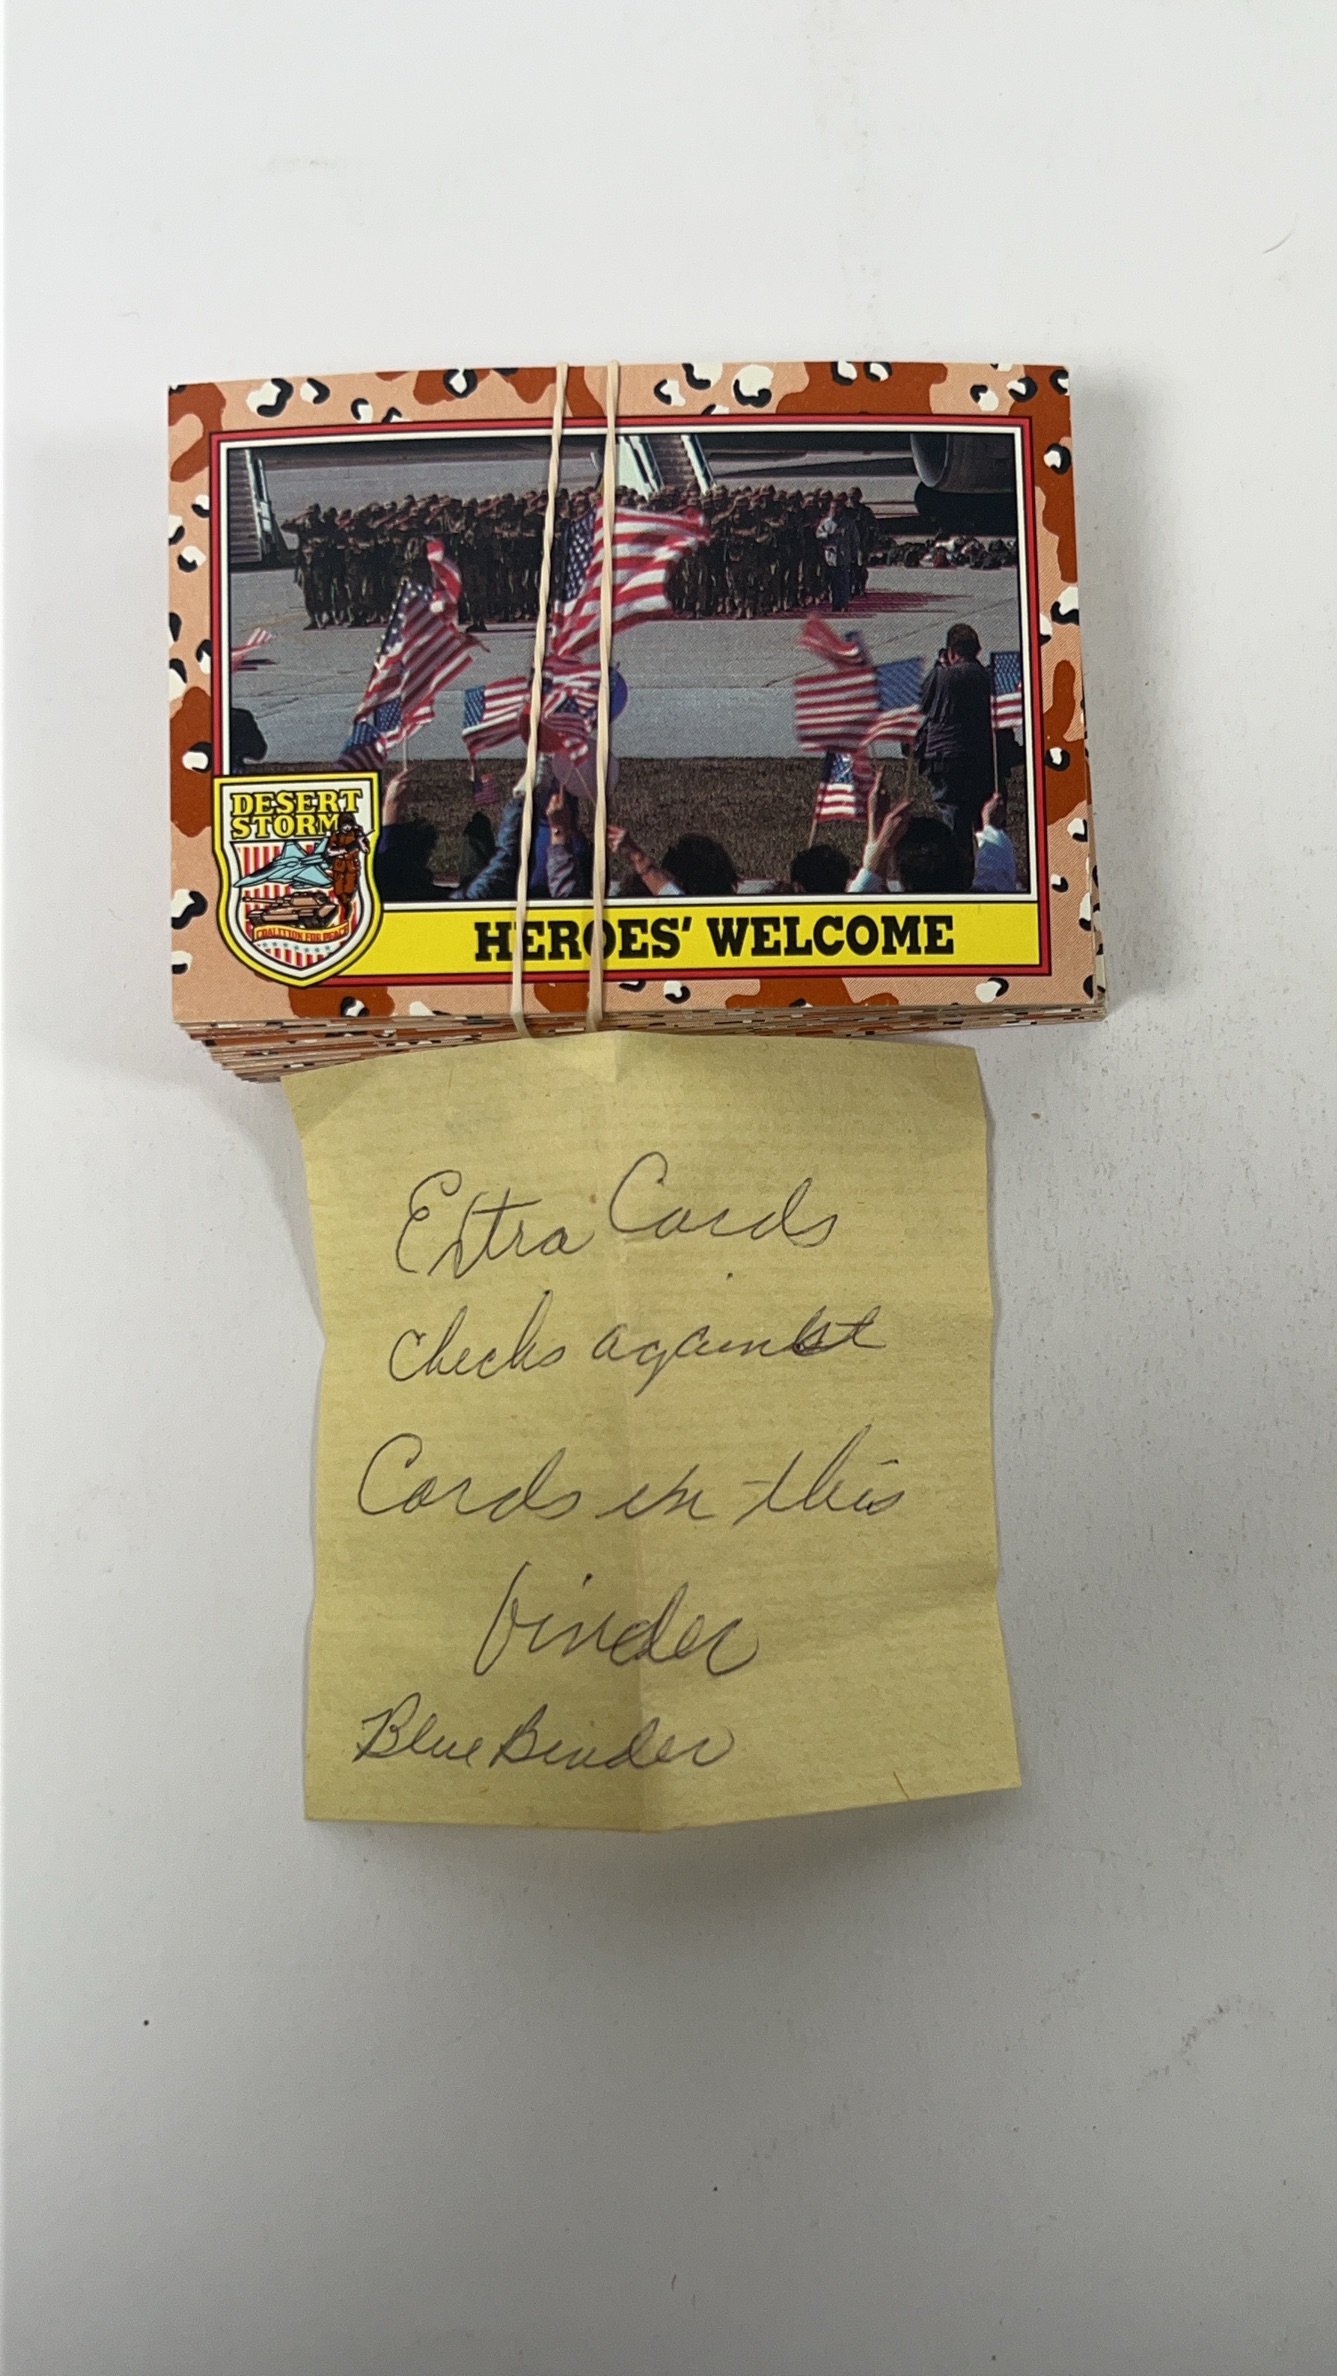 DESERT
STORM
COALITION FOR PEACE
HEROES' WELCOME
Extra Cards
checks against
Cards in this
binder
Blue Binder